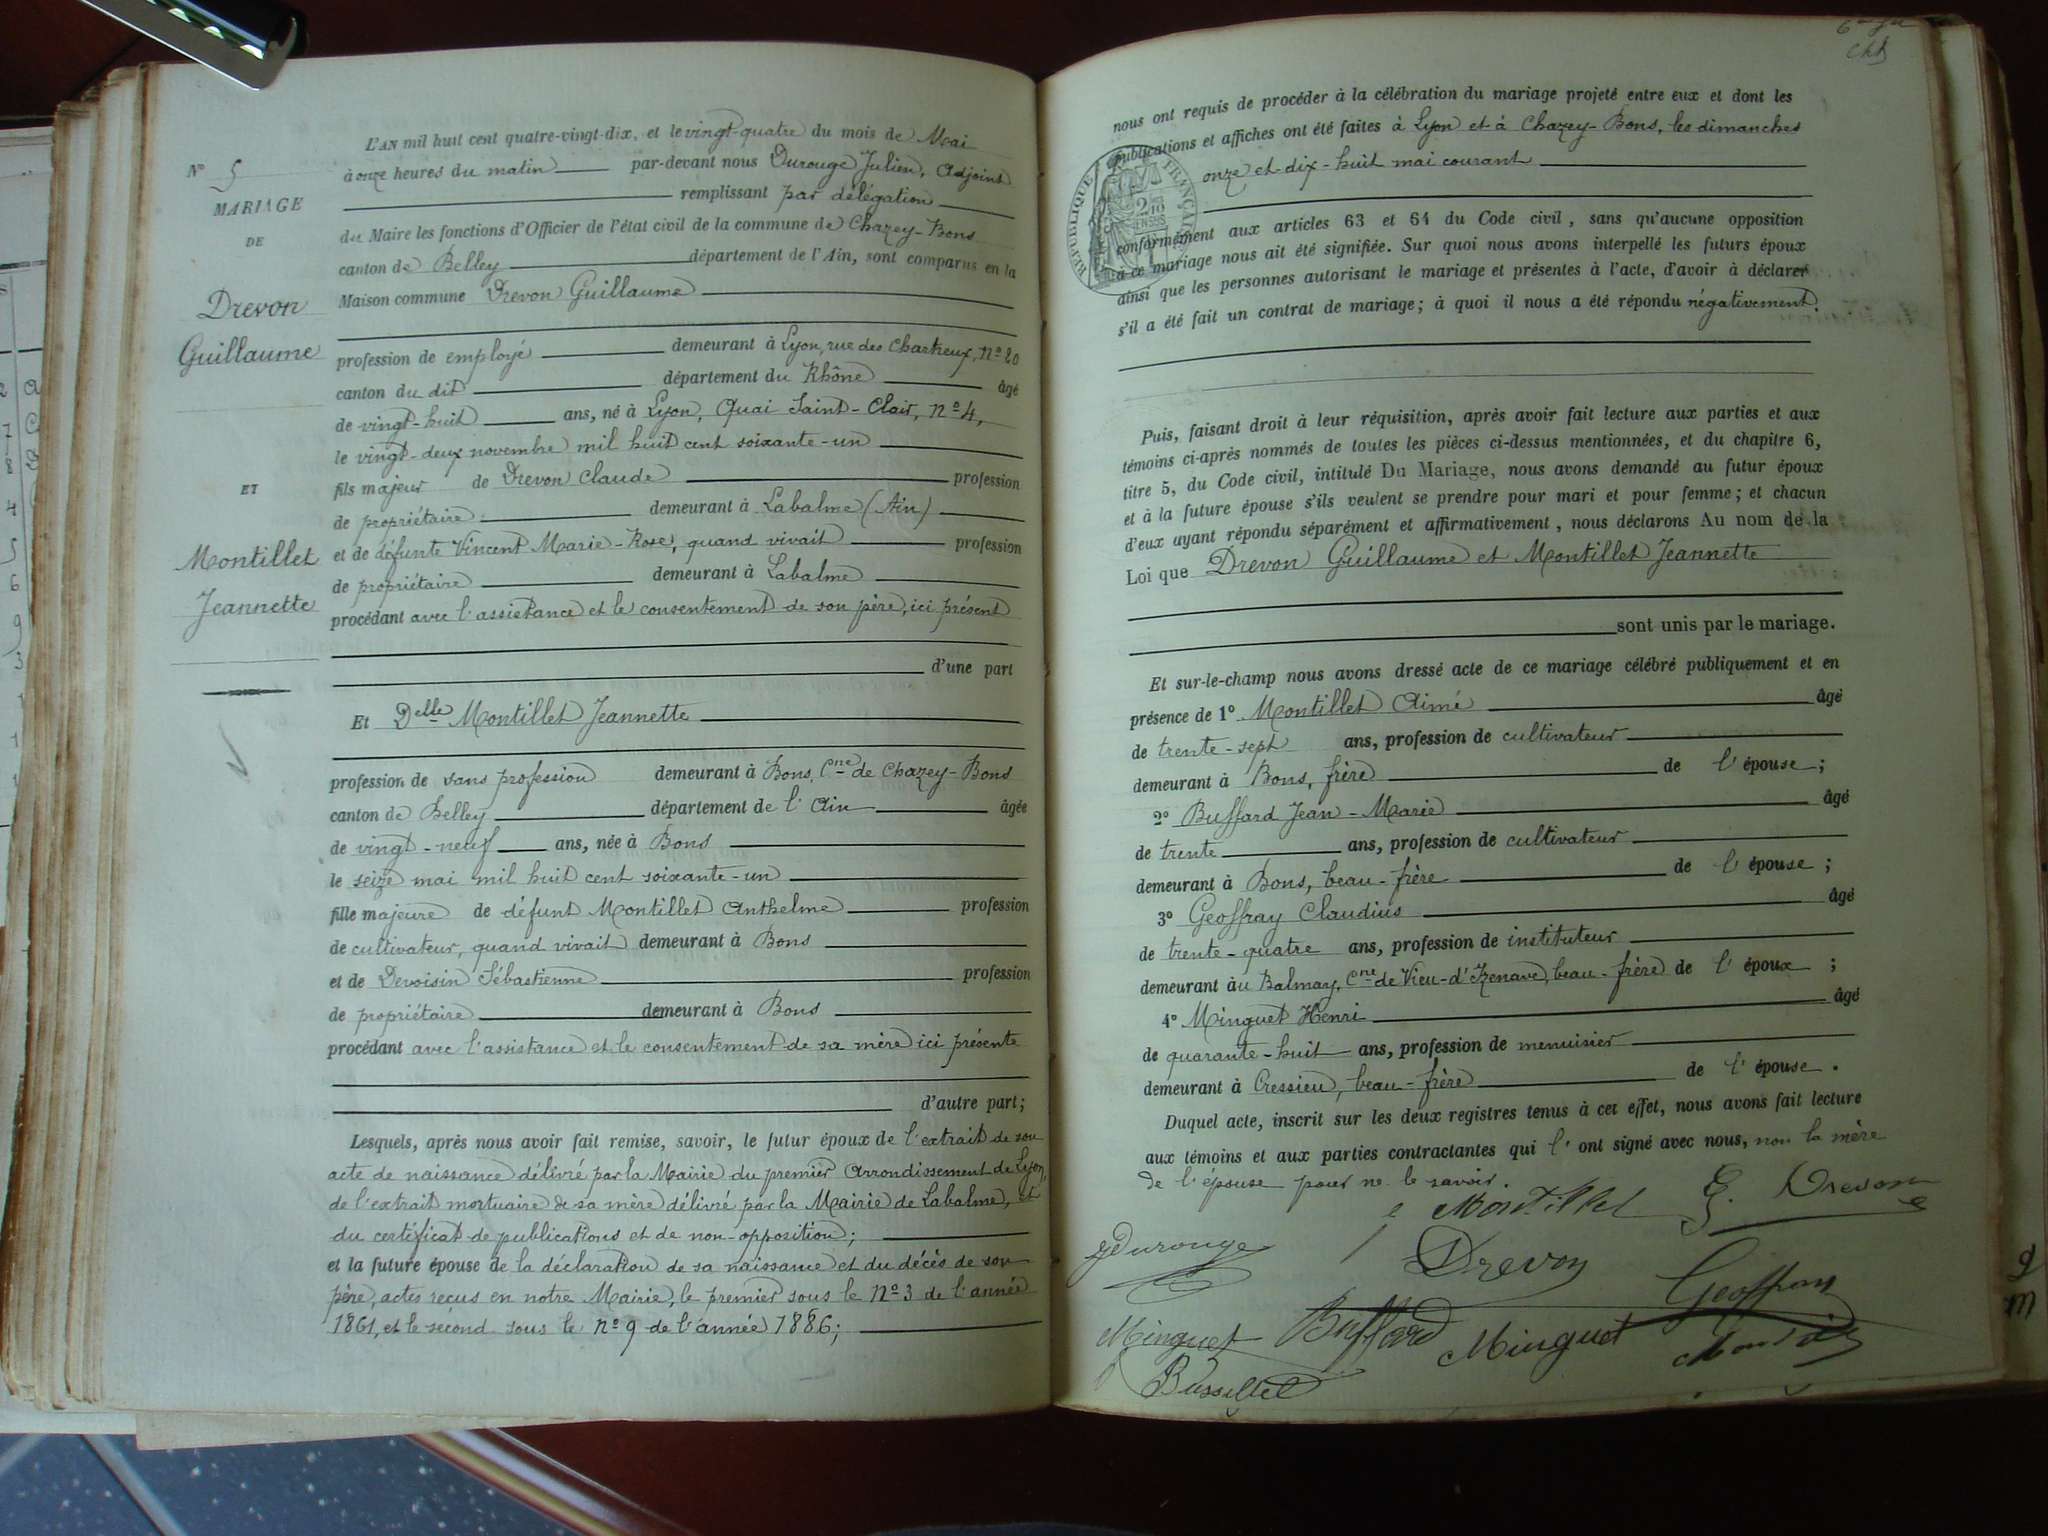 N° 5
MARIAGE
DE
Drevon
Guillaume
ET
Montillet
Jeannette
L'AN mil huit cent quatre-vingt-dix, et le vingt-quatre du mois de Mai
à onze heures du matin par-devant nous Durouge Julien, Adjoint
remplissant par délégation
du Maire les fonctions d'Officier de l'état civil de la commune de Chazey-Bons
canton de Belley département de l'Ain, sont comparus en la
Maison commune Drevon Guillaume
profession de employé demeurant à Lyon, rue des Chartreux, n° 20
canton du dit département du Rhône âgé
de vingt-huit ans, né à Lyon, Quai Saint-Clair, n° 4,
le vingt-deux novembre mil huit cent soixante-un
fils majeur de Drevon Claude profession
de propriétaire demeurant à Labalme (Ain)
et de défunte Vincent Marie-Rose, quand vivait profession
de propriétaire demeurant à Labalme
procédant avec l'assistance et le consentement de son père, ici présent
d'une part
Et Delle Montillet Jeannette
profession de sans profession demeurant à Bons, Cne de Chazey-Bons
canton de Belley département de l'Ain âgée
de vingt-neuf ans, née à Bons
le seize mai mil huit cent soixante-un
fille majeure de défunt Montillet Anthelme profession
de cultivateur, quand vivait demeurant à Bons
et de Devoisin Sébastienne profession
de propriétaire demeurant à Bons
procédant avec l'assistance et le consentement de sa mère ici présente
d'autre part;
Lesquels, après nous avoir fait remise, savoir, le futur époux de l'extrait de son
acte de naissance délivré par la Mairie du premier Arrondissement de Lyon,
de l'extrait mortuaire de sa mère délivré par la Mairie de Labalme, et
du certificat de publications et de non-opposition;
et la future épouse de la déclaration de sa naissance et du décès de son
père, actes reçus en notre Mairie, le premier sous le N° 3 de l'année
1861, et le second sous le n° 9 de l'année 1886;
nous ont requis de procéder à la célébration du mariage projeté entre eux et dont les
publications et affiches ont été faites à Lyon et à Chazey-Bons, les dimanches
onze et dix-huit mai courant
RÉPUBLIQUE FRANÇAISE
conformément aux articles 63 et 64 du Code civil, sans qu'aucune opposition
à ce mariage nous ait été signifiée. Sur quoi nous avons interpellé les futurs époux
ainsi que les personnes autorisant le mariage et présentes à l'acte, d'avoir à déclarer
s'il a été fait un contrat de mariage; à quoi il nous a été répondu négativement.
Puis, faisant droit à leur réquisition, après avoir fait lecture aux parties et aux
témoins ci-après nommés de toutes les pièces ci-dessus mentionnées, et du chapitre 6,
titre 5, du Code civil, intitulé Du Mariage, nous avons demandé au futur époux
et à la future épouse s'ils veulent se prendre pour mari et pour femme; et chacun
d'eux ayant répondu séparément et affirmativement, nous déclarons Au nom de la
Loi que Drevon Guillaume et Montillet Jeannette
sont unis par le mariage.
Et sur-le-champ nous avons dressé acte de ce mariage célébré publiquement et en
présence de 1° Montillet Aimé âgé
de trente-sept ans, profession de cultivateur
demeurant à Bons, frère de l'épouse;
2° Buffard Jean-Marie âgé
de trente ans, profession de cultivateur
demeurant à Bons, beau-frère de l'épouse;
3° Geoffray Claudius âgé
de trente-quatre ans, profession de instituteur
demeurant au Balmay, Cne de Vieu-d'Izenave, beau-frère de l'époux;
4° Minguet Henri âgé
de quarante-huit ans, profession de menuisier
demeurant à Cressieu, beau-frère de l'épouse.
Duquel acte, inscrit sur les deux registres tenus à cet effet, nous avons fait lecture
aux témoins et aux parties contractantes qui l'ont signé avec nous, non la mère
de l'épouse pour ne le savoir.
J Montillet G. Drevon
JDurouge Drevon Geoffray
Minguet Buffard Minguet